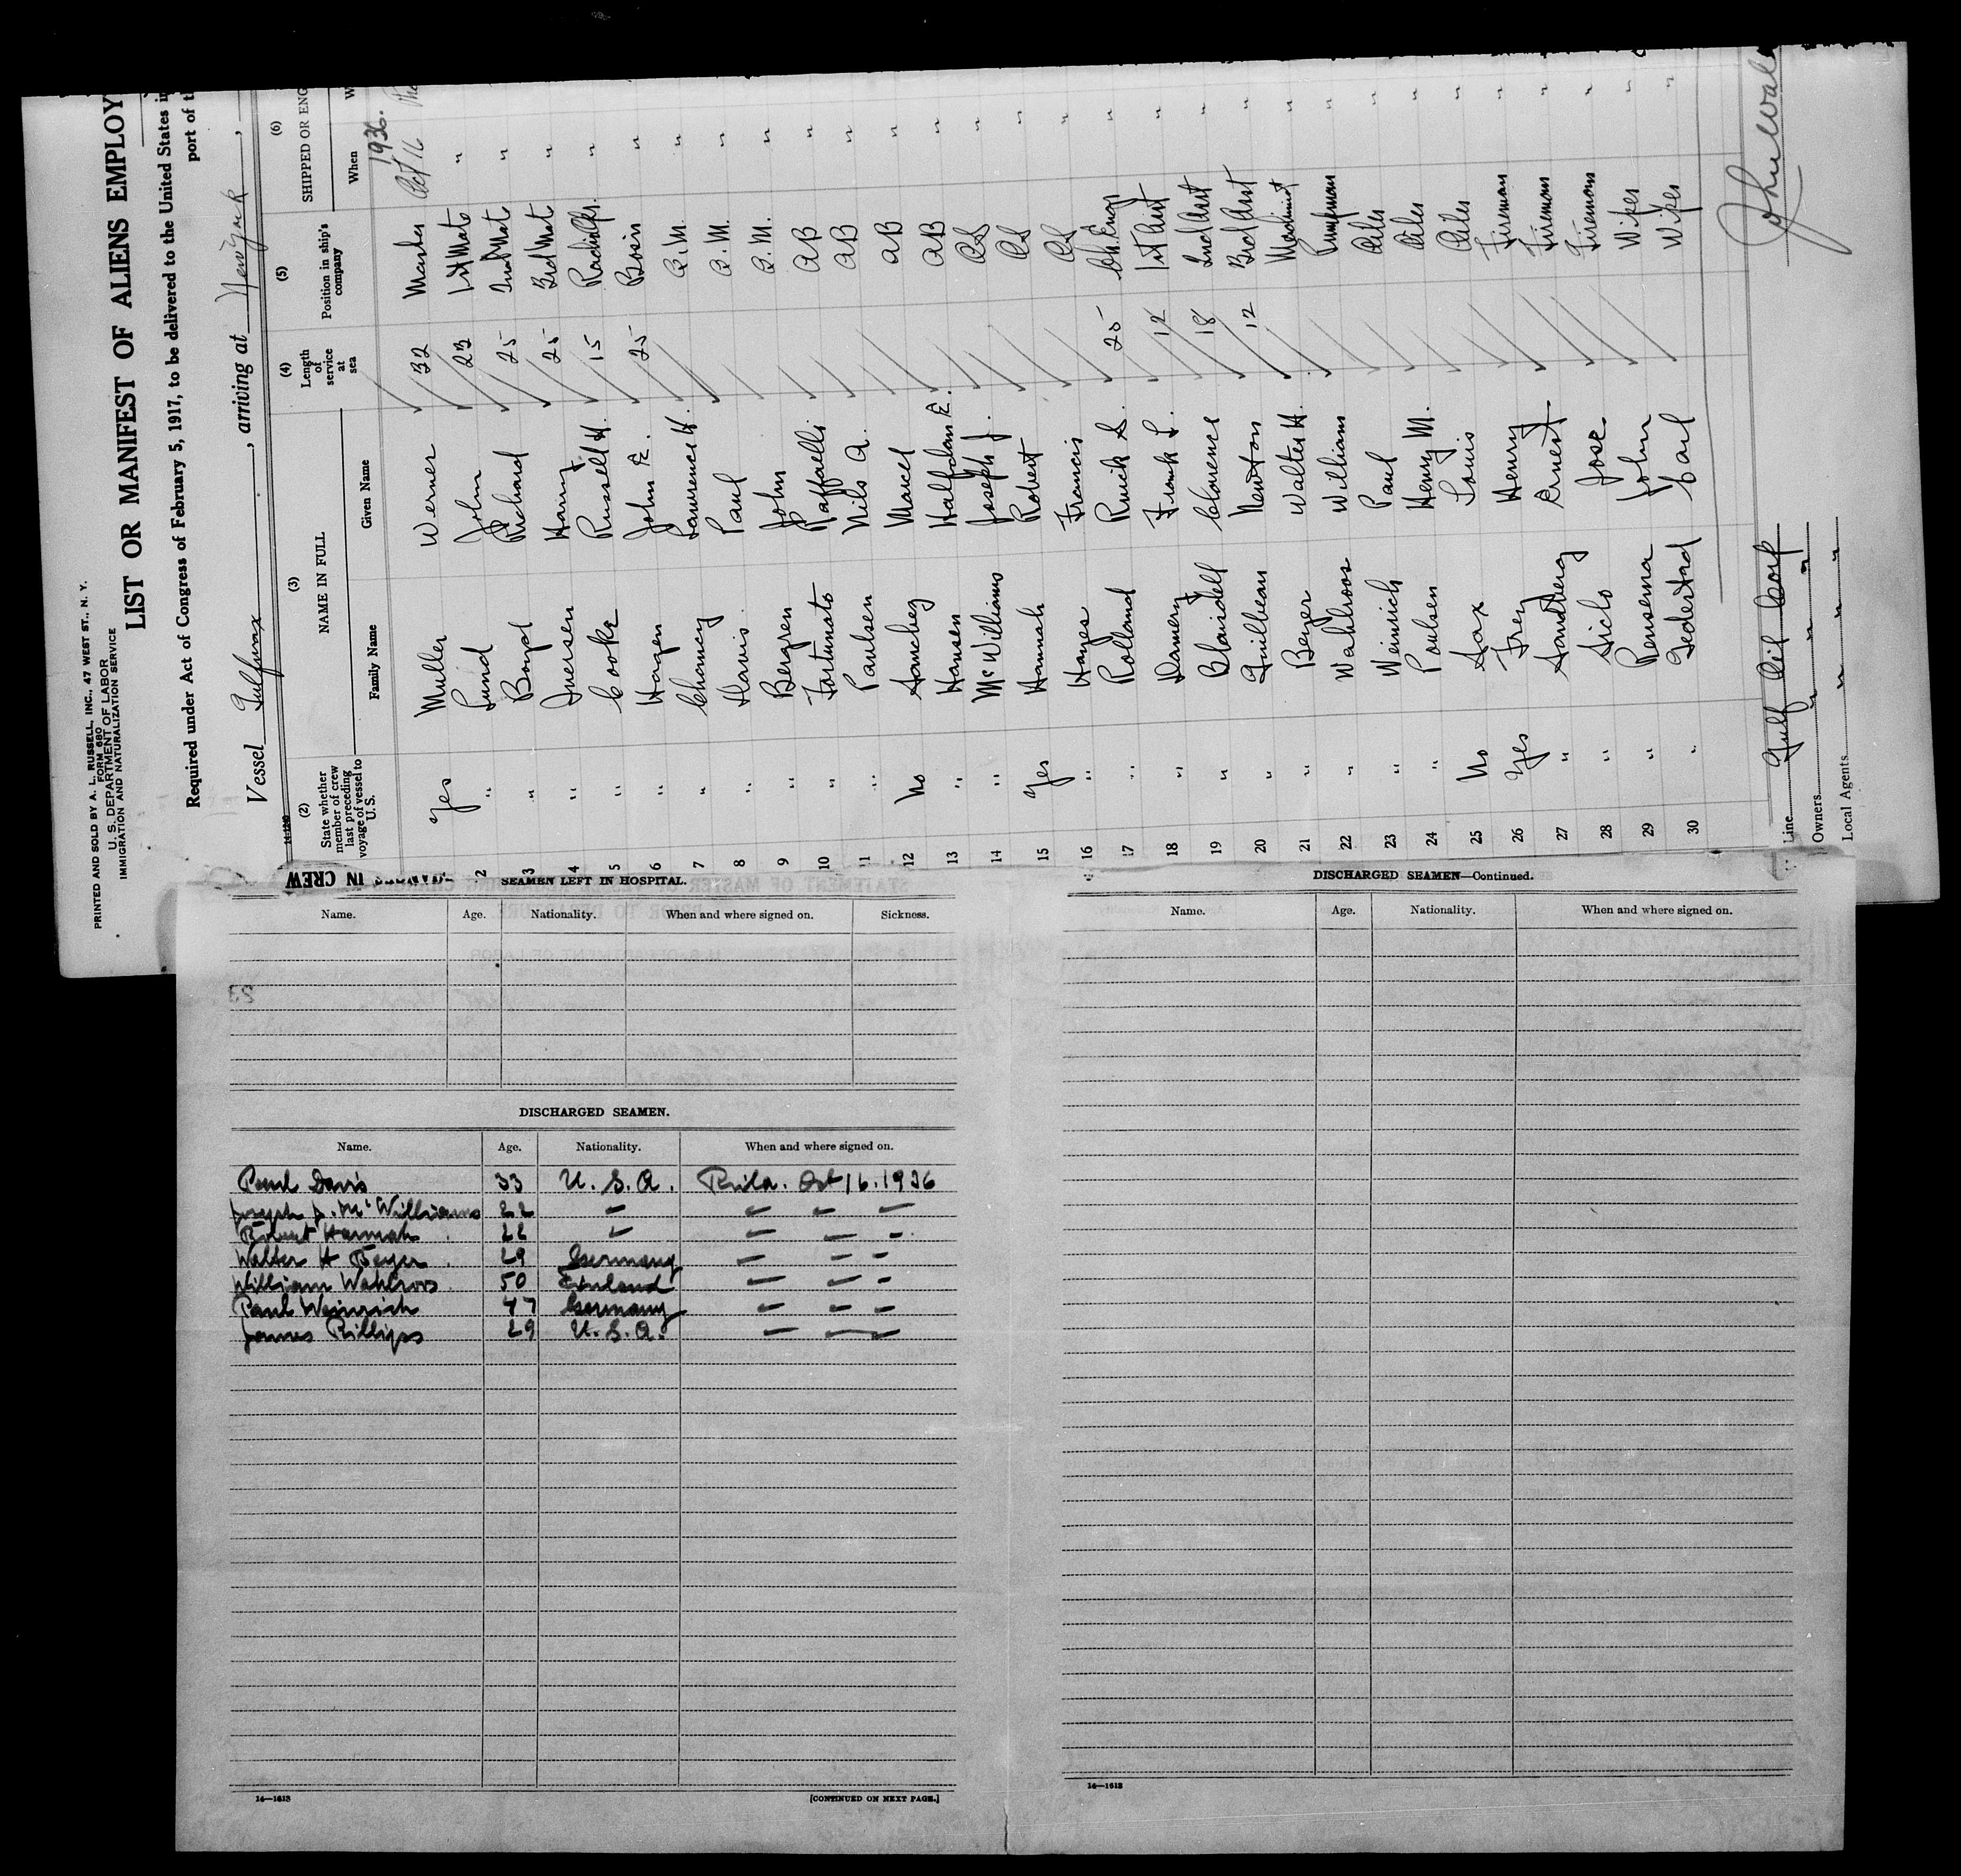 PRINTED AND SOLD BY A. L. RUSSELL, INC., 47 WEST ST., N. Y.
FORM 680
U. S. DEPARTMENT OF LABOR
IMMIGRATION AND NATURALIZATION SERVICE
LIST OR MANIFEST OF ALIENS EMPLOY
Required under Act of Congress of February 5, 1917, to be delivered to the United States i
port of t
Vessel Gulfwax, arriving at New York,
14-1240
(2) (3) (4) (5) (6)
State whether member of crew last preceding voyage of vessel to U. S. NAME IN FULL Length of service at sea Position in ship's company SHIPPED OR ENG
Family Name Given Name When W
1936.
Yes Muller Werner 32 Master Oct 16
2 " Lund John 23 1st Mate "
3 " Boyd Richard 25 2nd Mate "
4 " Iversen Harry 25 3rd Mate "
5 " Cooke Russell H. 15 Radio Opr. "
6 " Hagen John E. 25 Bosin "
7 " Chancy Lawrence H. Q.M. "
8 " Davis Paul Q.M. "
9 " Bergren John Q.M. "
10 " Fortunato Raffaelli AB "
11 " Paulsen Nils A. AB "
12 No Marcel AB "
13 " Hansen Halfdan E. AB "
14 " McWilliams Joseph J. OS "
15 Yes Hannah Robert OS "
16 " Hayes Francis OS "
17 " Rolland S. 25 Ch. Engr "
18 " Damery Frank L. 12 1st Asst "
19 " Blaisdell Clarence 18 2nd Asst "
20 " Guilbeau Newton 12 3rd Asst "
21 " Beyer Walter H. Machinist "
22 " Wahlroos William Pumpman "
23 " Weinrich Paul Oiler "
24 " Poulsen Henry M. Oiler "
25 No Sax Louis Oiler "
26 Yes Frey Henry Fireman "
27 " Sandberg Ernest Fireman "
28 " Siclo Jose Fireman "
29 " Pensema John Wiper "
30 " Carl Wiper "
Line Gulf Oil Corp
Owners " " "
Local Agents " " "
IN CREW
SEAMEN LEFT IN HOSPITAL.
Name. Age. Nationality. When and where signed on. Sickness.
DISCHARGED SEAMEN.
Name. Age. Nationality. When and where signed on.
Paul Davis 33 U. S. A. Phila. Oct 16. 1936
Joseph J. McWilliams 22 " " " "
Robert Hannah 22 " " " "
Walter H Beyer 29 Germany " " "
William Wahlroos 50 Finland " " "
Paul Weinrich 47 Germany " " "
James Phillips 29 U. S. A. " " "
14—1613
[CONTINUED ON NEXT PAGE.]
DISCHARGED SEAMEN—Continued.
Name. Age. Nationality. When and where signed on.
14—1613